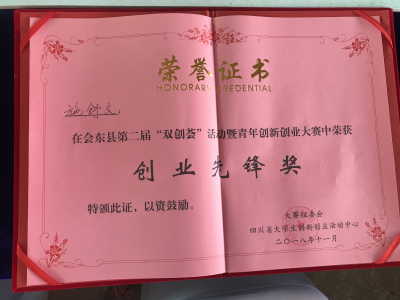 荣誉证书
HONORARY CREDENTIAL
在会东县第二届“双创荟”活动暨青年创新创业大赛中荣获
创业先锋奖
特颁此证，以资鼓励。
大赛组委会
四川省大学生创新创业活动中心
二〇一八年十一月